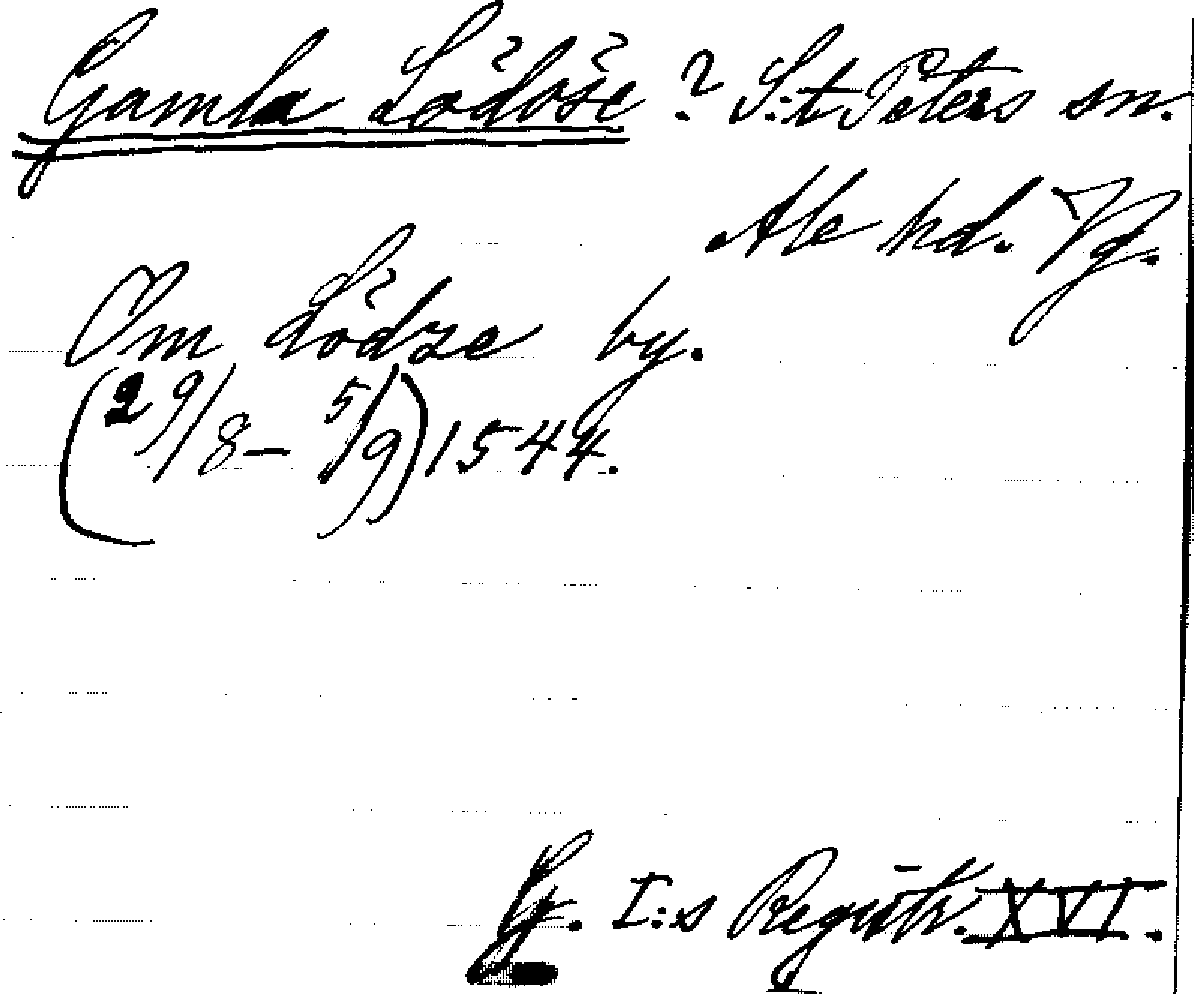 Gamla Lödöse? S:t Peters sn.
Ale hd. Vg.
Om Lödze by.
(29/8 – 5/9) 1544.
G. I:s Registr. XVI.